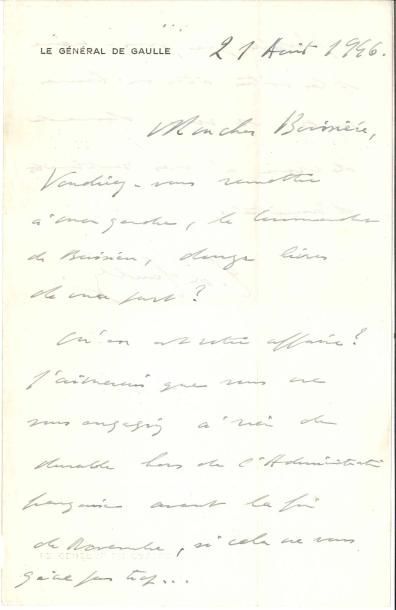 LE GÉNÉRAL DE GAULLE
21 Août 1946.
Mon cher Boissière,
Voudriez-vous remettre
à mon gendre, le Commandant
de Boissieu, douze livres
de ma part ?
Où en est votre affaire ?
J'aimerais que vous ne
vous engagiez à rien de
durable hors de l'Administration
française avant la fin
de Novembre, si cela ne vous
gêne pas trop...